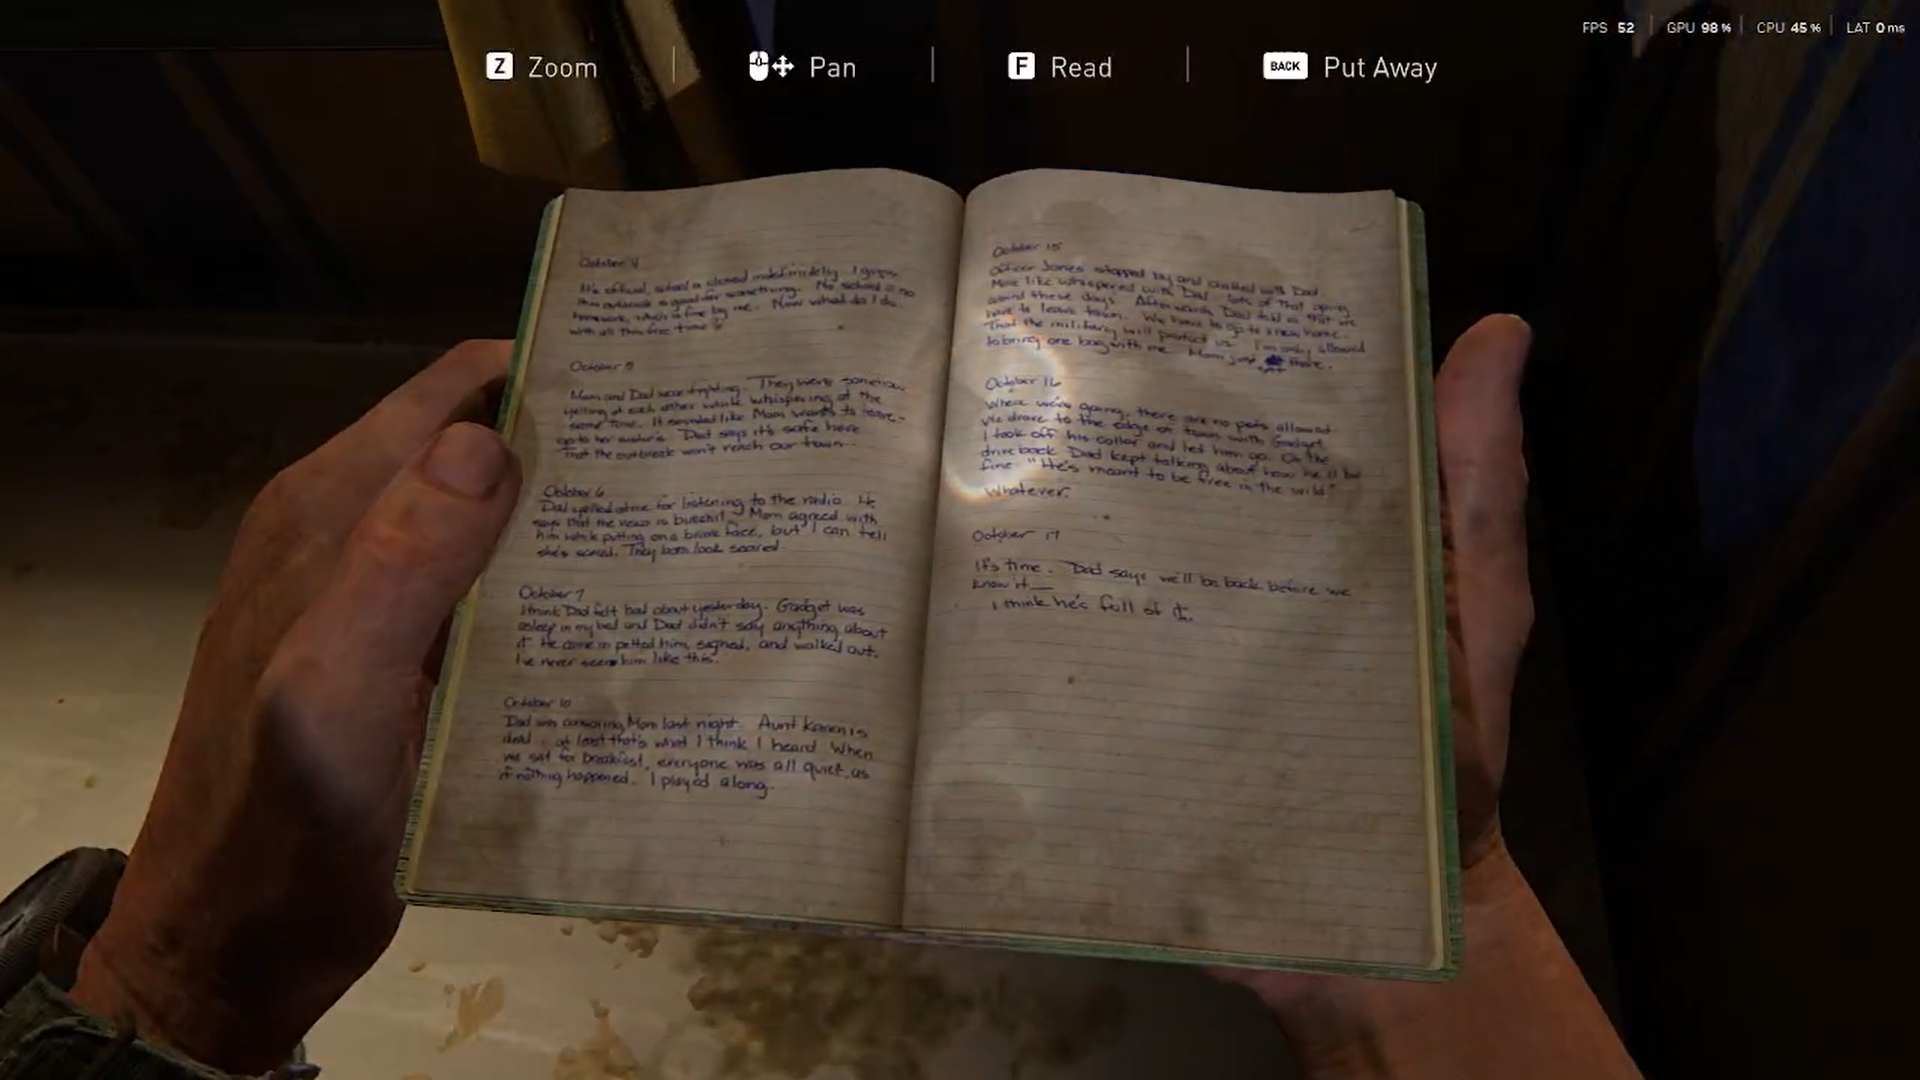 FPS 52 GPU 98 % CPU 45 % LAT 0 ms
Z Zoom
Pan
F Read
BACK Put Away
October 4
It's official, school is closed indefinitely. I guess
this outbreak is good for something. No school = no
homework, which is fine by me. Now what do I do
with all this free time?
October 5
Mom and Dad were fighting. They were somehow
yelling at each other while whispering at the
same time. It sounded like Mom wants to leave -
go to her sister's. Dad says it's safe here
That the outbreak won't reach our town...
October 6
Dad yelled at me for listening to the radio. He
says that the news is bullshit. Mom agreed with
him while putting on a brave face, but I can tell
she's scared. They both look scared.
October 7
I think Dad felt bad about yesterday. Gadget was
asleep in my bed and Dad didn't say anything about
it. He came in petted him, sighed, and walked out.
I've never seen him like this.
October 10
Dad was consoling Mom last night. Aunt Karen is
dead... at least that's what I think I heard. When
we sat for breakfast, everyone was all quiet, as
if nothing happened. I played along.
October 15
Officer Jones stopped by and chatted with Dad.
More like whispered with Dad. Lots of that going
around these days. Afterwards Dad told us that we
have to leave town. We have to go to a new home.
That the military will protect us. I'm only allowed
to bring one bag with me. Mom just there.
October 16
Where we're going, there are no pets allowed.
We drove to the edge of town with Gadget.
I took off his collar and let him go. On the
drive back Dad kept talking about how he'll be
fine "He's meant to be free in the wild"
Whatever.
October 17
It's time. Dad says we'll be back before we
know it
I think he's full of it.